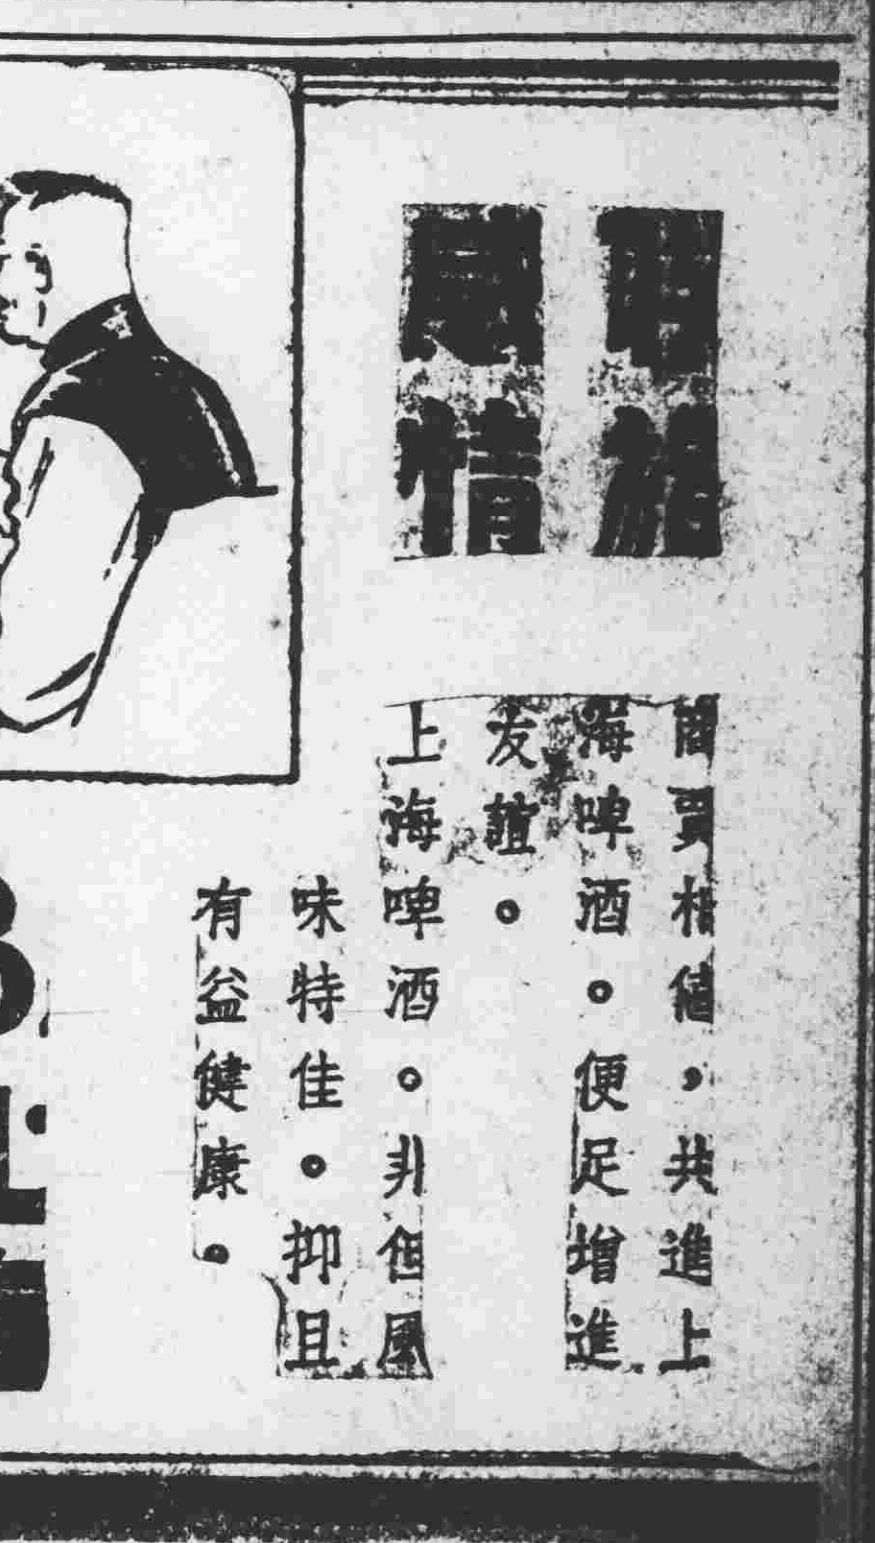 情
商賈相値，共進上
海啤酒。便足增進
友誼。
上海啤酒。非但風
味特佳。抑且
有益健康。